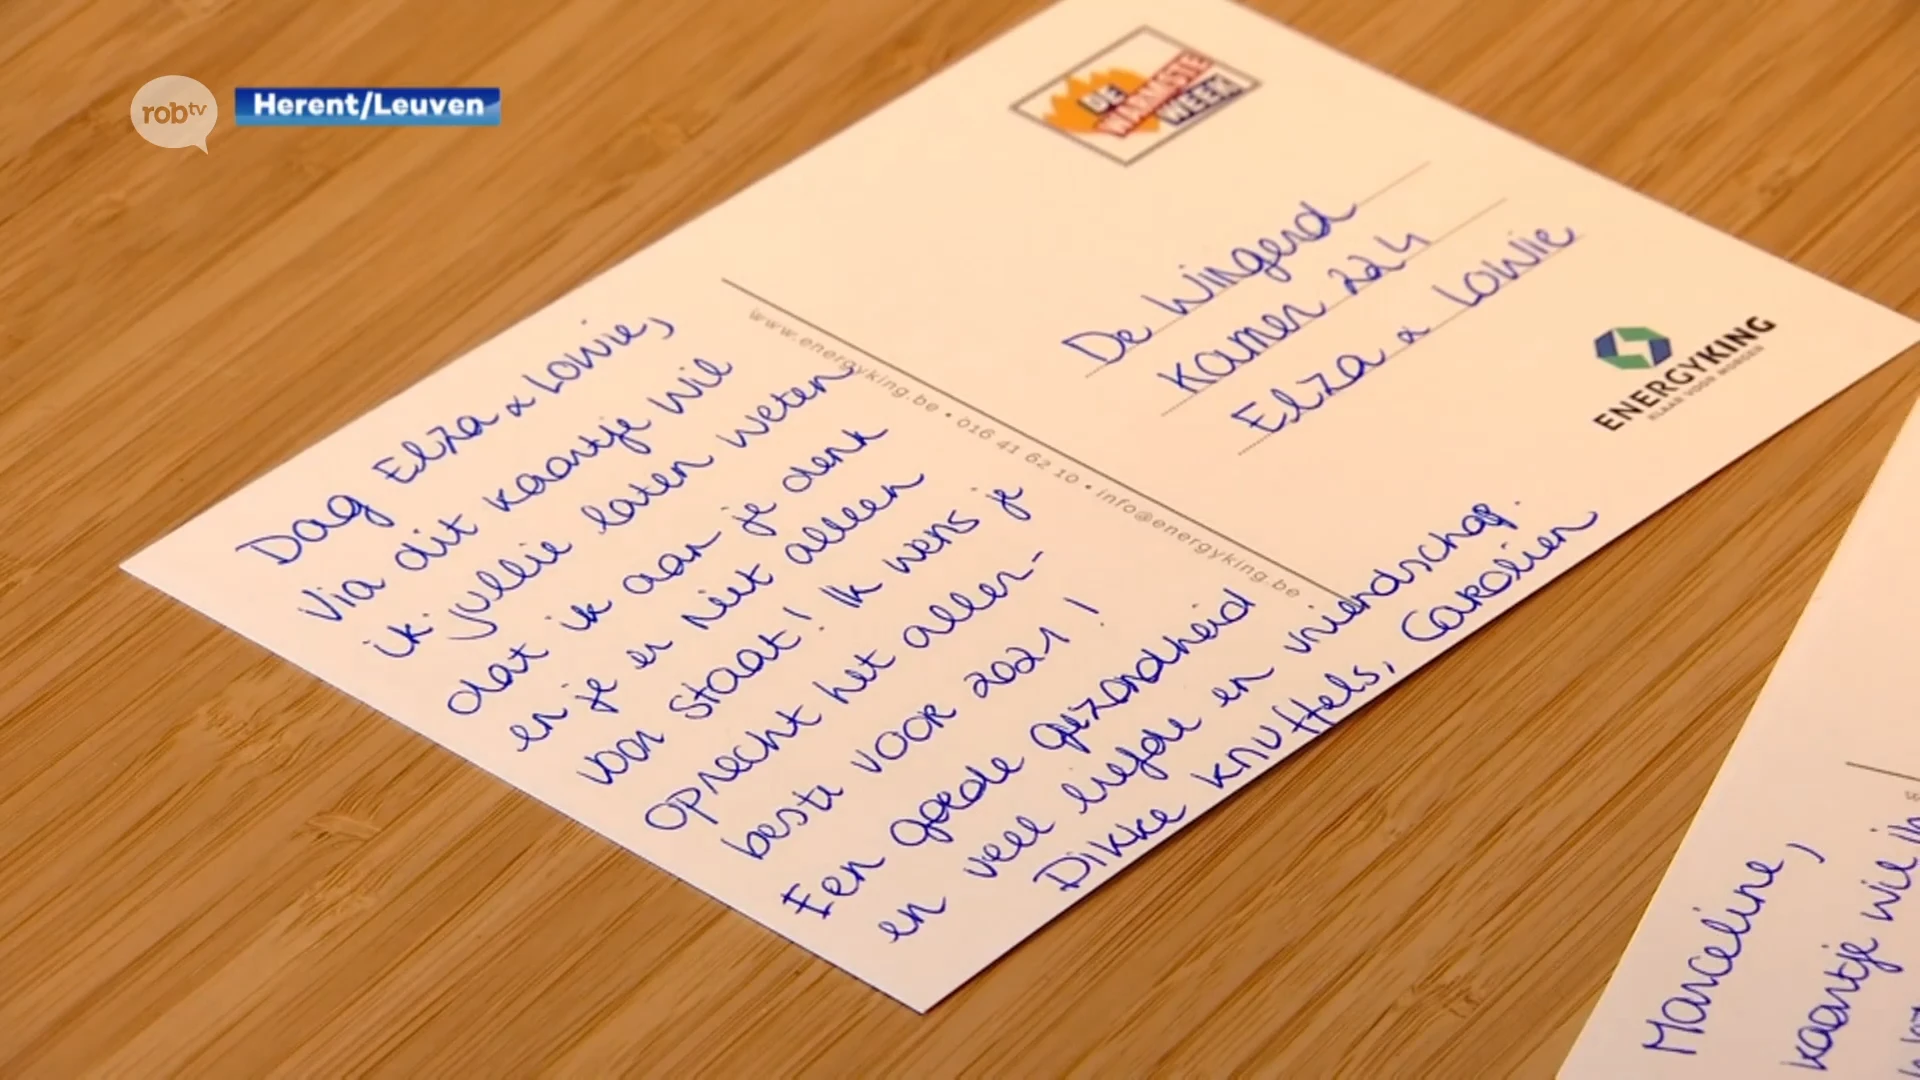 robtv
Herent/Leuven
DE
WARMSTE
WEEK
De Wingerd
Kamer 224
Elza & Lowie
ENERGYKING
KLAAR VOOR MORGEN
www.energyking.be • 016 41 62 10 • info@energyking.be
Dag Elza & Lowie,
Via dit kaartje wil
ik jullie laten weten
dat ik aan je denk
en je er niet alleen
voor staat! Ik wens je
oprecht het aller-
beste voor 2021!
Een goede gezondheid
en veel liefde en vriendschap.
Dikke knuffels, Carolien
Marceline,
kaartje wil ik